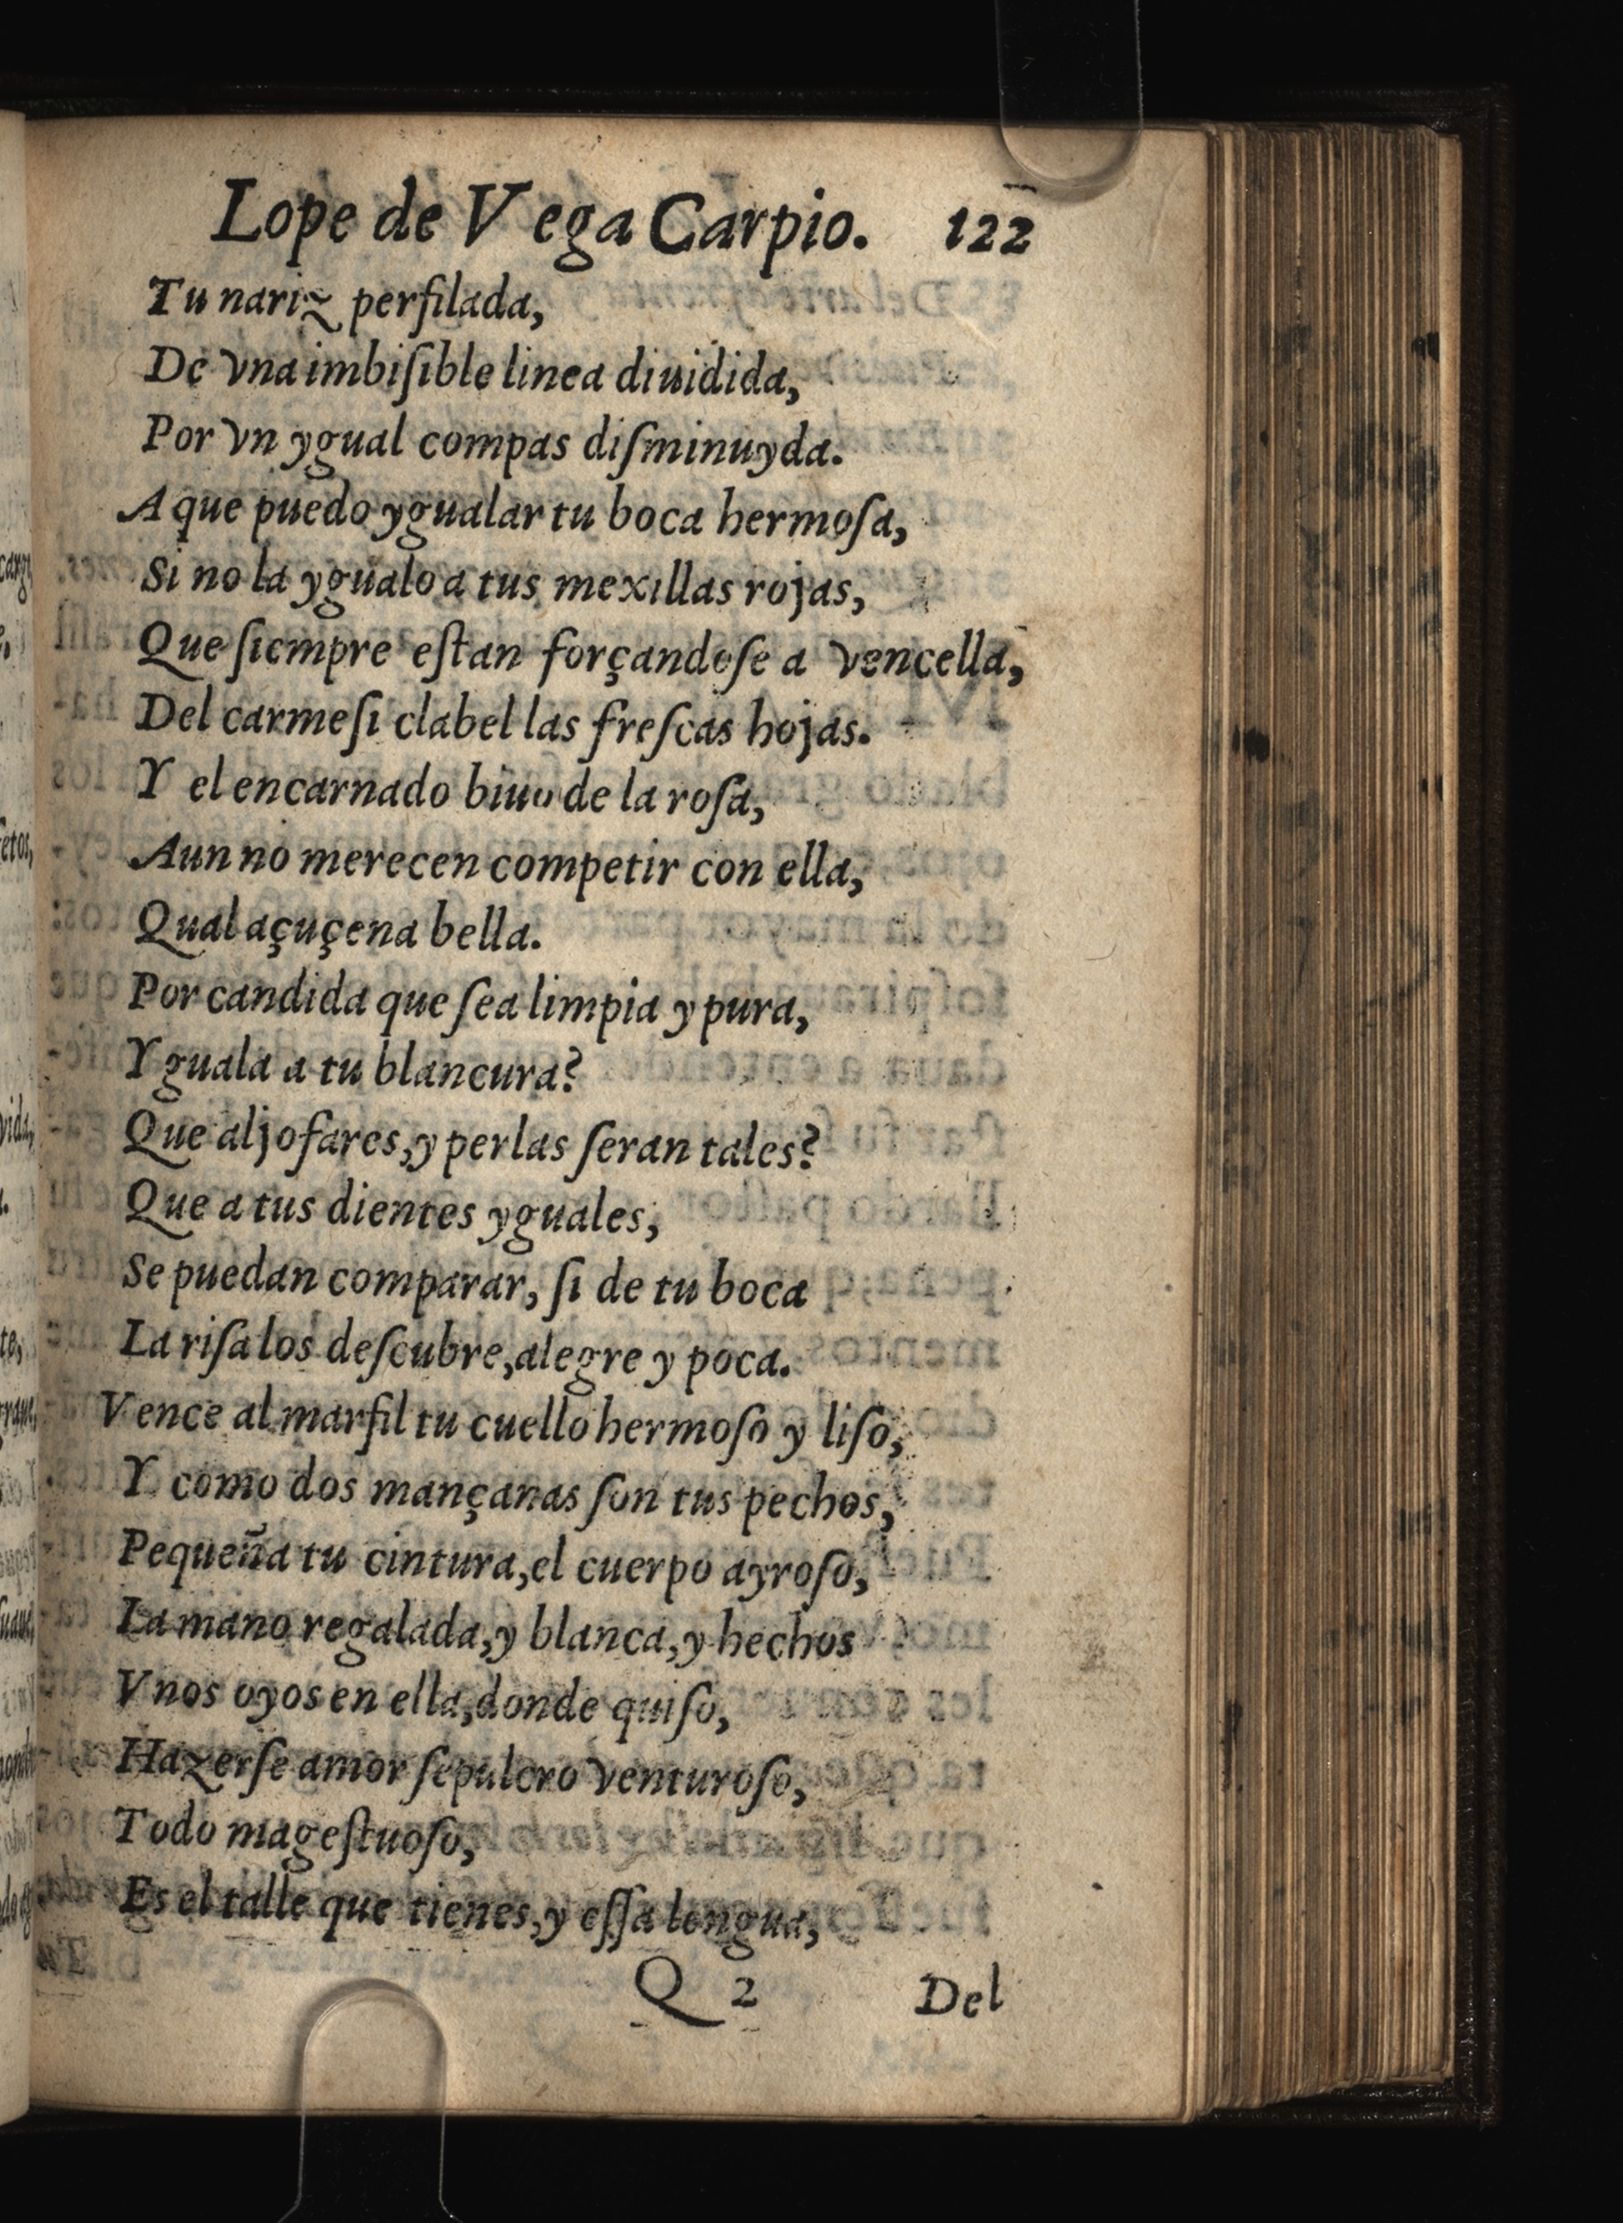 Lope de Vega Carpio. 122
Tu nariz perfilada,
De vna imbiſible linea diuidida,
Por vn ygual compas diſminuyda.
A que puedo ygualar tu boca hermoſa,
Si no la ygualo a tus mexillas rojas,
Que ſiempre eſtan forçandoſe a vencella,
Del carmeſi clabel las freſcas hojas.
Y el encarnado biuo de la roſa,
Aun no merecen competir con ella,
Qual açuçena bella.
Por candida que ſea limpia y pura,
Yguala a tu blancura?
Que aljofares, y perlas ſeran tales?
Que a tus dientes yguales,
Se puedan comparar, ſi de tu boca
La riſa los deſcubre, alegre y poca.
Vence al marfil tu cuello hermoſo y liſo,
Y como dos mançanas ſon tus pechos,
Pequeña tu cintura, el cuerpo ayroſo,
La mano regalada, y blanca, y hechos
Vnos oyos en ella, donde quiſo,
Hazerſe amor ſepulcro venturoſo,
Todo mageſtuoſo,
Es el talle que tienes, y eſſa lengua,
Q 2 Del